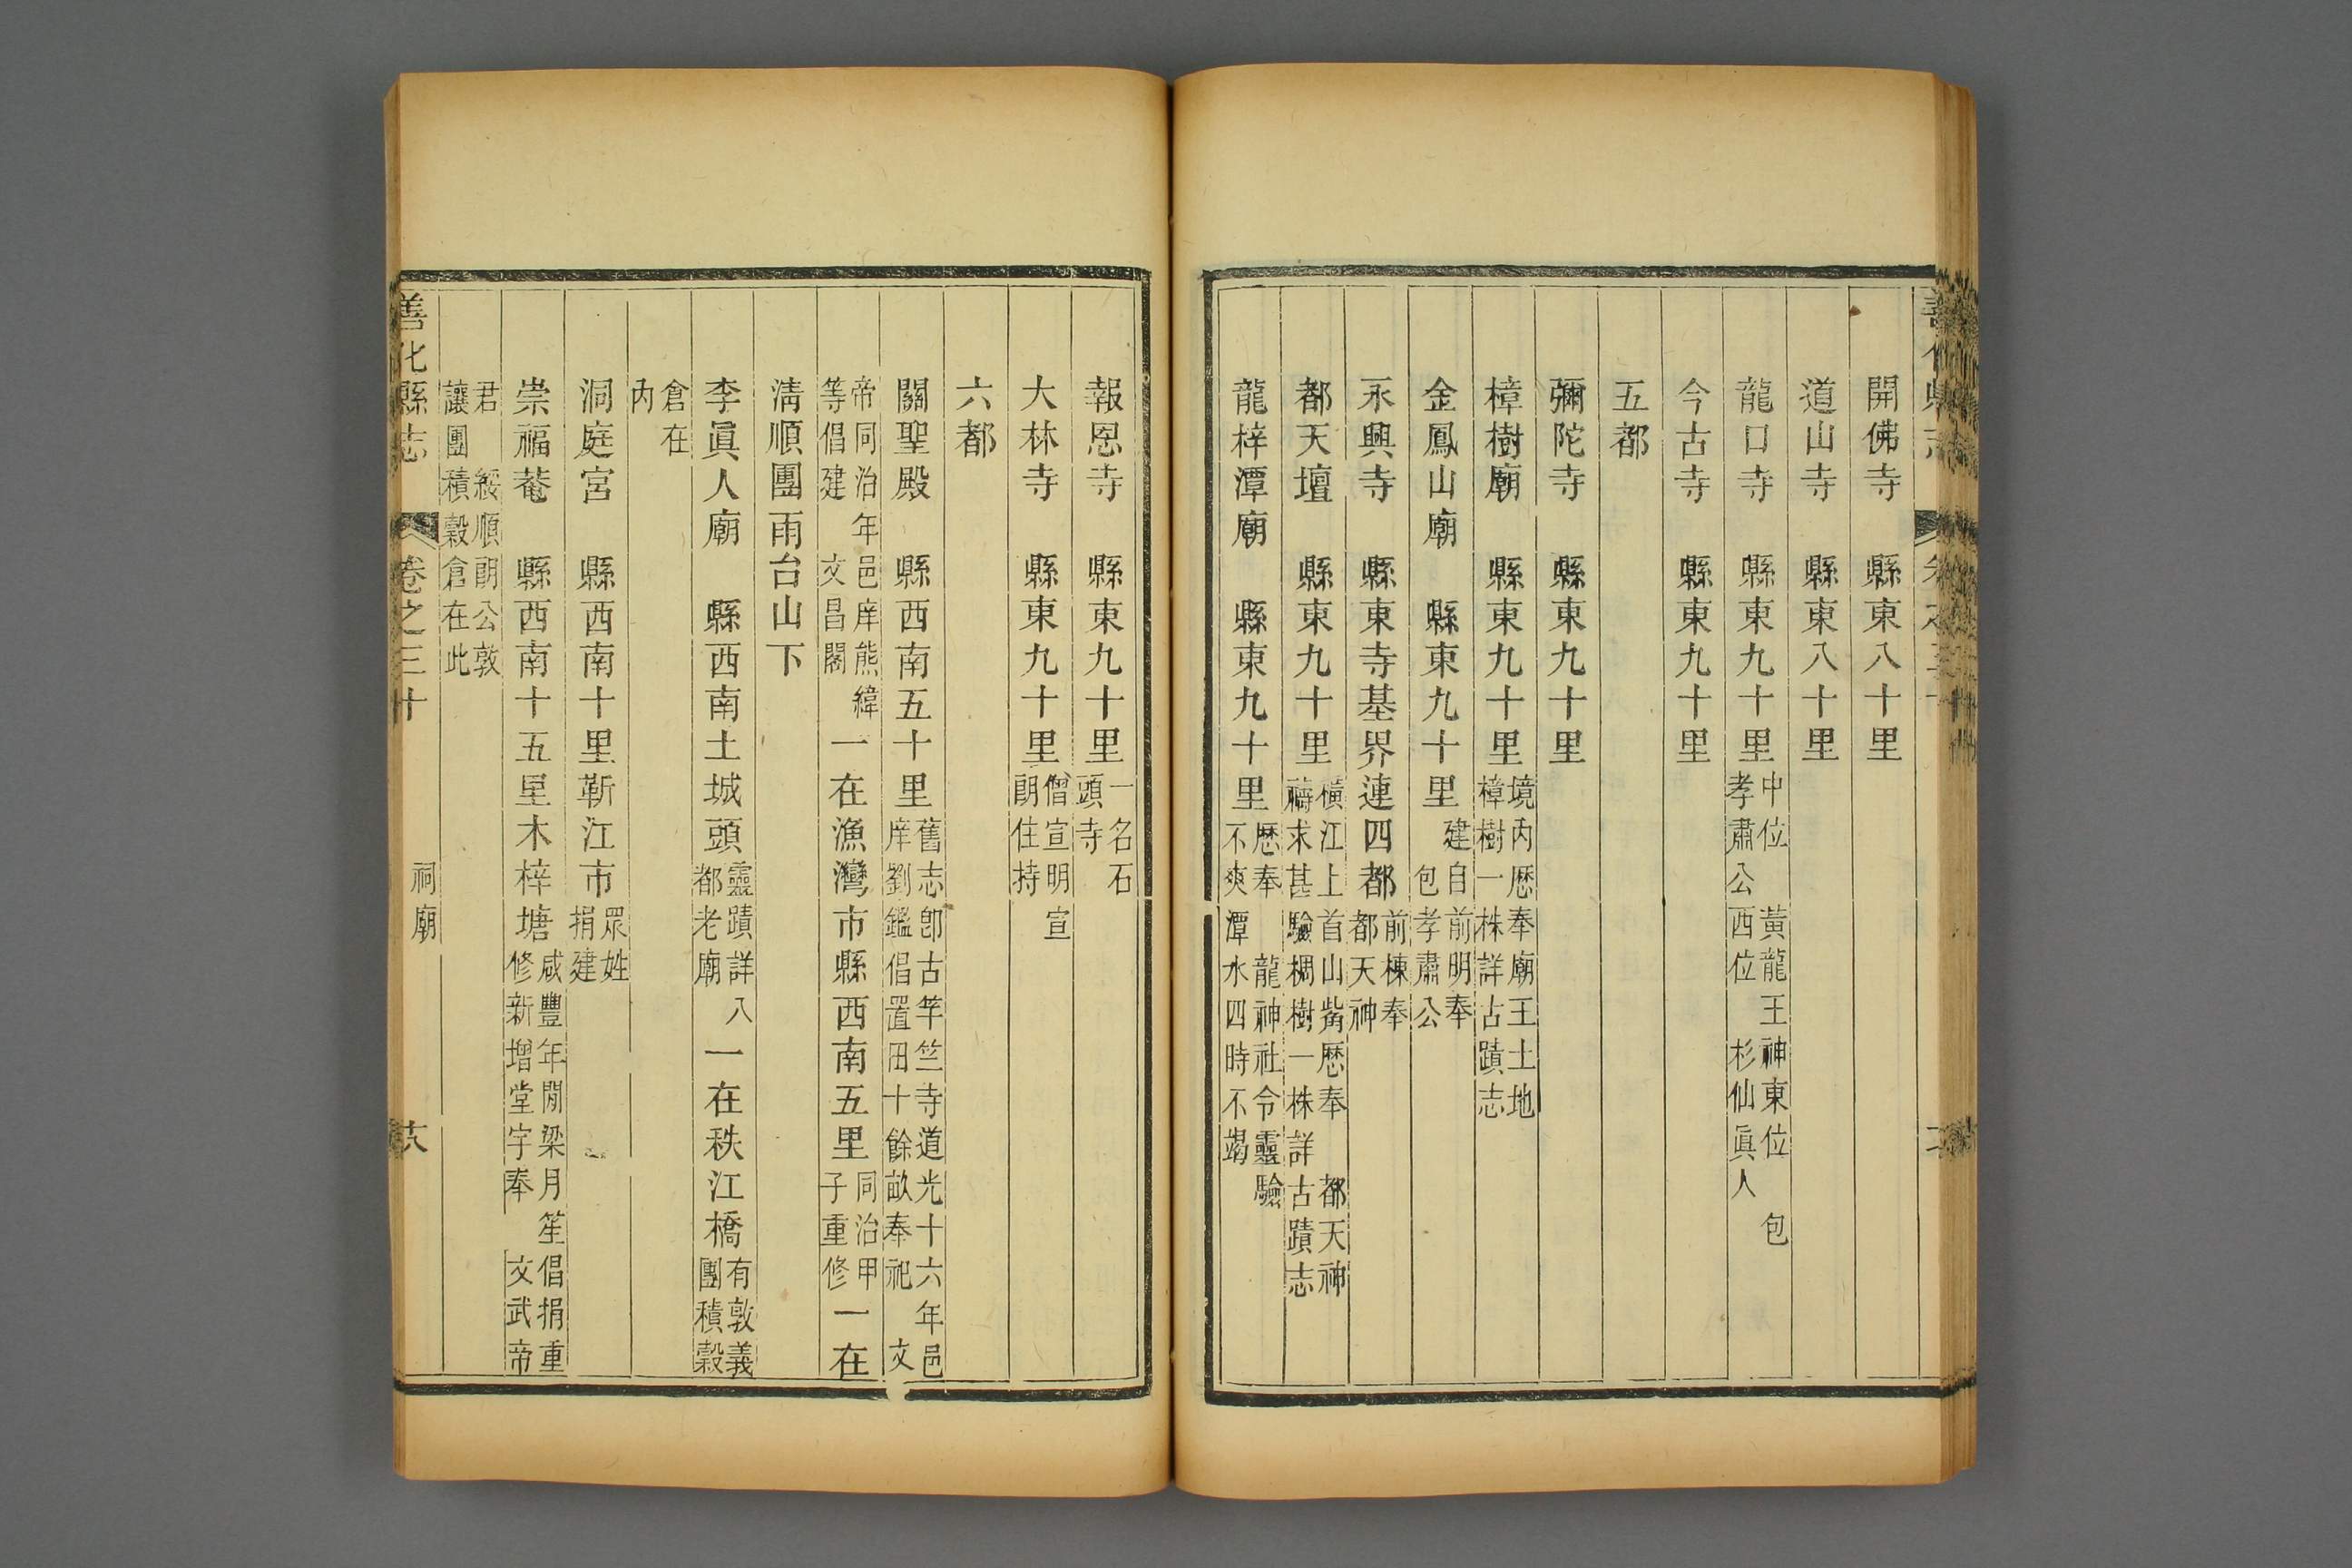 開佛寺 縣東八十里
道山寺 縣東八十里
龍口寺 縣東九十里 中位 黃龍王神東位 包
孝肅公西位 杉仙眞人
今古寺 縣東九十里
五都
彌陀寺 縣東九十里
樟樹廟 縣東九十里 境內歷奉廟王土地
樟樹一株詳古蹟志
金鳳山廟 縣東九十里 建自前明奉
包孝肅公
永興寺 縣東寺基界連四都 前棟奉
都天神
都天壇 縣東九十里 橫江上首山嘴歷奉 都天神
禱求甚驗椆樹一株詳古蹟志
龍梓潭廟 縣東九十里 歷奉 龍神社令靈驗
不爽潭水四時不竭
報恩寺 縣東九十里 一名石
頭寺
大林寺 縣東九十里 僧宣明宣
朗住持
六都
關聖殿 縣西南五十里 舊志卽古竿竺寺道光十六年邑
庠劉鑑倡置田十餘畝奉祀 文
帝同治 年邑庠熊緯
等倡建 文昌閣
一在漁灣市縣西南五里 同治甲
子重修
一在
淸順團雨台山下
李眞人廟 縣西南土城頭 靈蹟詳八
都老廟
一在秩江橋 有敦義
團積穀
倉在
內
洞庭宮 縣西南十里靳江市 眾姓
捐建
崇福菴 縣西南十五里木梓塘 咸豐年閒梁月笙倡捐重
修新增堂宇奉 文武帝
君 綏順朗公敦
讓團積穀倉在此
善化縣志 卷之三十 祠廟 十八